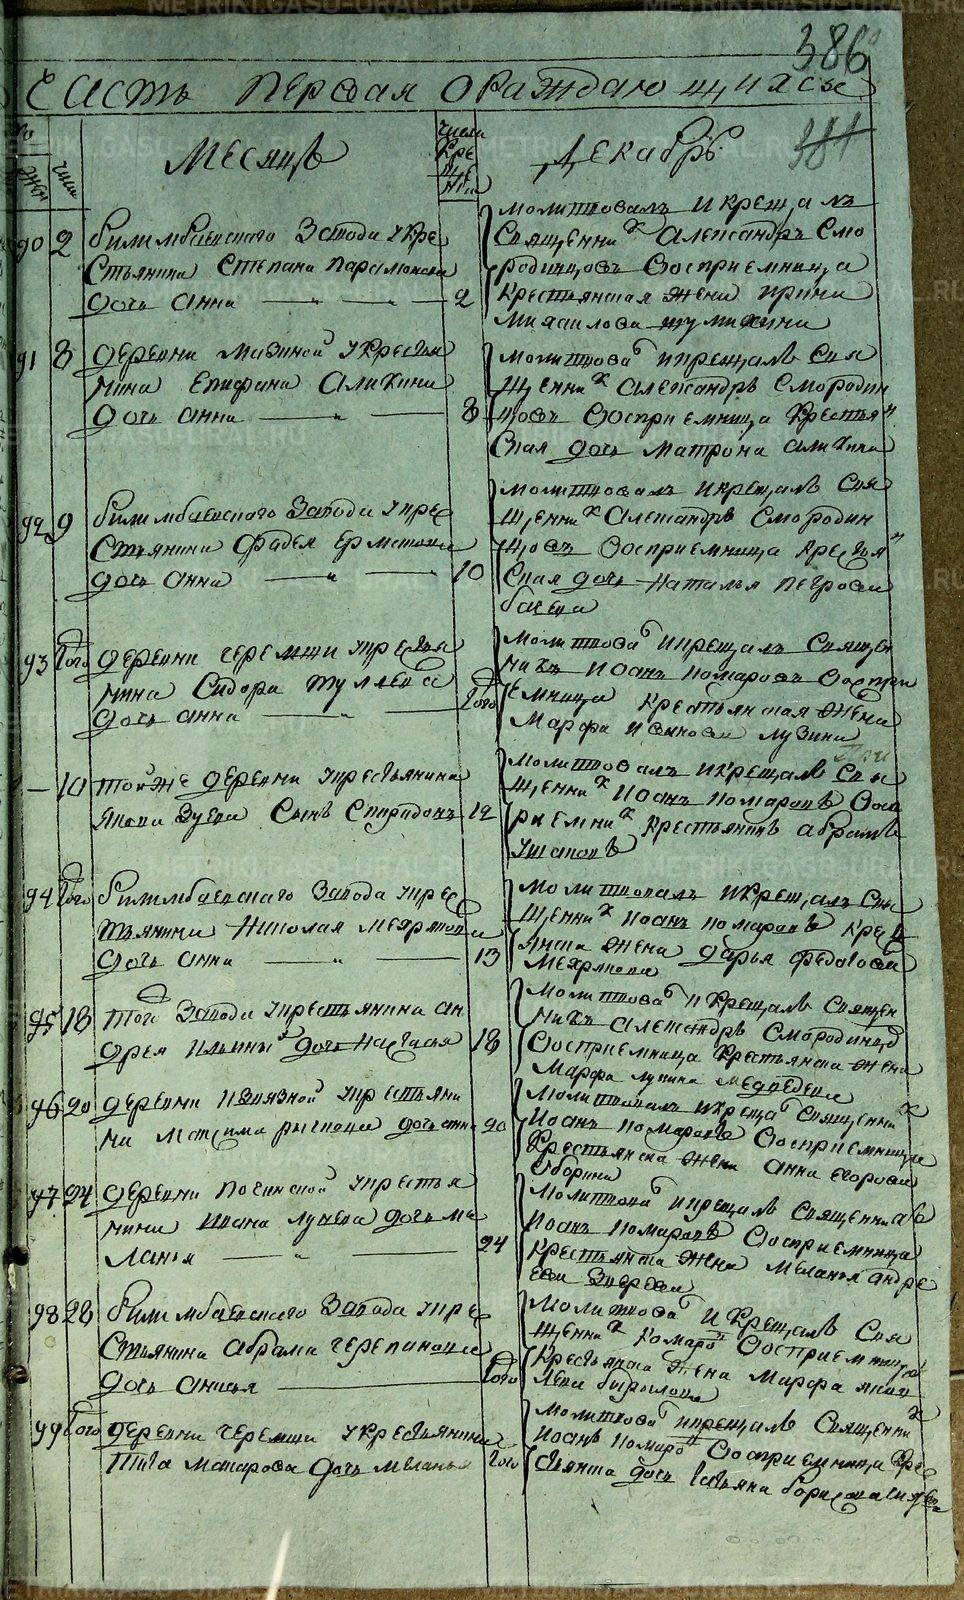 386
Часть первая о раждающихся
Месяцъ
числа
кре
ще
нiя
Декабрь
381
числа
90 2 Билимбаевскаго завода у кре
стьянина Степана Парамонова
дочь Анна 2
молитвовалъ и крещалъ
священникъ Александръ Смо
родинцовъ восприемница
крестьянская жена Ирина
Михаилова
91 8 деревни Мазиной у крестья
нина Епифана Аликина
дочь Анна 8
молитвовалъ и крещалъ свя
щенникъ Александръ Смородин
цовъ восприемница крестьян
ская дочь Матрона Аликина
92 9 Билимбаевскаго завода у кре
стьянина Фадея Ермакова
дочь Анна 10
молитвовалъ и крещалъ свя
щенникъ Александръ Смородин
цовъ восприемница крестьян
ская дочь Наталья Петрова
93 того деревни Черемши у крестья
нина Сидора
дочь Анна того
молитвовалъ и крещалъ священ
никъ Иоанъ Комаровъ воспри
емница крестьянская жена
Марфа Иванова Лузина
— 10 той же деревни у крестьянина
Якова Зуева сынъ Спиридонъ 12
молитвовалъ и крещалъ свя
щенникъ Иоанъ Комаровъ вос
риемникъ крестьянинъ Абрамъ
Ушаковъ
94 того Билимбаевскаго завода у крес
тьянина Николая Медрякова
дочь Анна 13
молитвовалъ и крещалъ свя
щенникъ Иоанъ Комаровъ крес
янска жена Дарья Федотова
Медрякова
95 18 того завода у крестьянина Ан
дрея Ильиныхъ дочь Настасья 18
молитвовалъ и крещалъ священ
никъ Александръ Смородинцо
восприемница крестьянска жена
Марфа Лукина Медведева
96 20 деревни Извязной у крестьяни
на Максима дочь Анна 20
молитвовалъ и крещалъ священникъ
Иоанъ Комаровъ восприемница
крестьянска жена Анна Егорова
97 24 деревни Починской у крестья
нина Ивана Лунева дочь Ме
ланья 24
молитвовалъ и крещалъ священникъ
Иоанъ Комаровъ восприемница
крестьянска жена Меланья Андре
ева Зверева
98 28 Билимбаевскаго завода у кре
стьянина Абрама Черепанова
дочь Анисья того
молитвовалъ и крещалъ свя
щенникъ Комаровъ восприемница
крестьянска жена Марфа
99 того деревни Черемши у крестьянина
Тита Макарова дочь Меланья того
молитвовалъ и крещалъ священникъ
Иоанъ Комаровъ восприемница кре
стьянска дочь Татьяна
METRIKI.GASO-URAL.RU